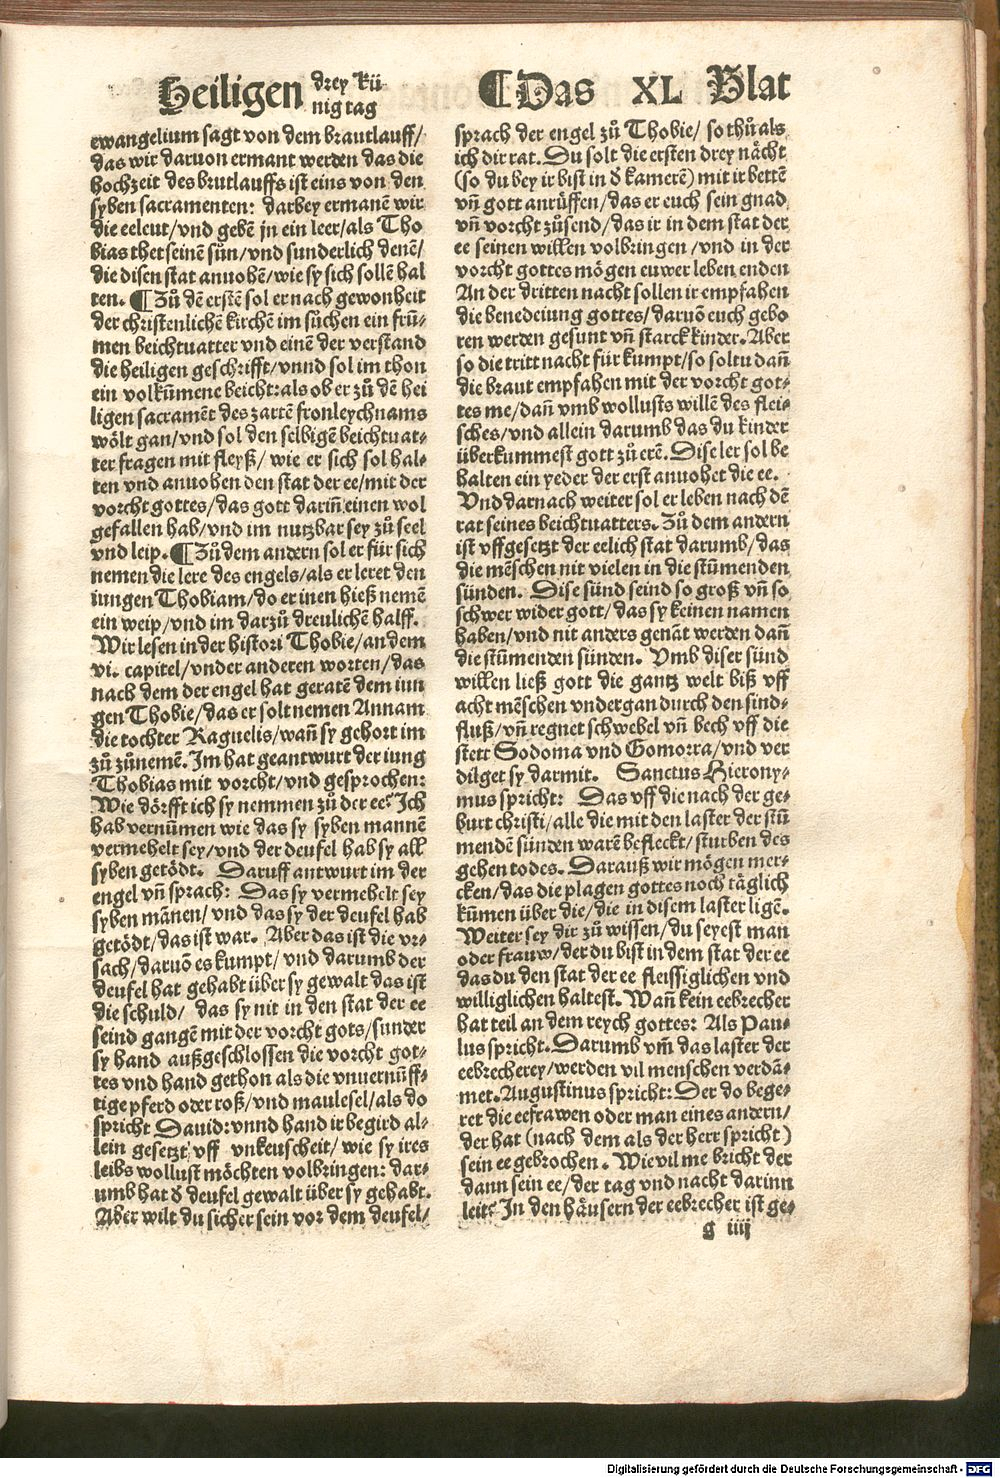 Heiligen drey kü
nig tag
¶Das XL Blat
ewangelium sagt von dem brautlauff/
das wir daruon ermant werden das die
hochzeit des brutlauffs ist eins von den
syben sacramenten: darbey ermanē wir
die eeleut/vnd gebē jn ein leer/als Tho
bias thet seinē sůn/vnd sunderlich denē/
die disen stat anuohē/wie sy sich sollē hal
ten. ¶Zů dē erstē sol er nach gewonheit
der christenlichē kirchē im sůchen ein frū-
men beichtuatter vnd einē der verstand
die heiligen geschrifft/vnnd sol im thon
ein volkūmene beicht:als ob er zů dē hei
ligen sacramēt des zartē fronleychnams
wölt gan/vnd sol den selbigē beichtuat-
ter fragen mit fleyß/ wie er sich sol hal-
ten vnd anuohen den stat der ee/mit der
vorcht gottes/das gott darīn einen wol
gefallen hab/vnd im nutzbar sey zů seel
vnd leip. ¶Zů dem andern sol er für sich
nemen die lere des engels/als er leret den
iungen Thobiam/do er inen hieß nemē
ein weip/vnd im darzů dreulichē halff.
Wir lesen in der histori Thobie/an dem
vi. capitel/vnder anderen worten/das
nach dem der engel hat geratē dem iun
gen Thobie/das er solt nemen Annam
die tochter Raguelis/wañ sy gehort im
zů zůnemē. Im hat geantwurt der iung
Thobias mit vorcht/vnd gesprochen:
Wie dörfft ich sy nemmen zů der ee? Ich
hab vernūmen wie das sy syben mannē
vermehelt sey/vnd der deufel hab sy all
syben getödt. Daruff antwurt im der
engel vñ sprach: Das sy vermehelt sey
syben mānen/ vnd das sy der deufel hab
getödt/das ist war. Aber das ist die vr-
sach/daruō es kumpt/ vnd darumb der
deufel hat gehabt über sy gewalt das ist
die schuld/ das sy nit in den stat der ee
seind gangē mit der vorcht gots/sunder
sy hand außgeschlossen die vorcht got-
tes vnd hand gethon als die vnuernūff-
tige pferd oder roß/vnd maulesel/als do
spricht Dauid:vnnd hand ir begird al-
lein gesetzt vff vnkeuscheit/ wie sy ires
leibs wollust möchten volbringen: dar-
umb hat ð deufel gewalt über sy gehabt.
Aber wilt du sicher sein vor dem deufel/
sprach der engel zů Thobie/ so thů als
ich dir rat. Du solt die ersten drey nächt
(so du bey ir bist in ð kamerē) mit ir bettē
vñ gott anrüffen/das er euch sein gnad
vñ vorcht zůsend/das ir in dem stat der
ee seinen willen volbringen/vnd in der
vorcht gottes mögen euwer leben enden
An der dritten nacht sollen ir empfahen
die benedeiung gottes/daruō euch gebo
ren werden gesunt vñ starck kinder. Aber
so die tritt nacht für kumpt/so soltu dañ
die braut empfahen mit der vorcht got-
tes me/dañ vmb wollusts willē des flei-
sches/vnd allein darumb das du kinder
überkummest gott zů erē. Dise ler sol be
halten ein yeder der erst anuohet die ee.
Vnd darnach weiter sol er leben nach dē
rat seines beichtuatters. Zů dem andern
ist vffgesetzt der eelich stat darumb/das
die mēschen nit vielen in die stūmenden
sünden. Dise sünd seind so groß vñ so
schwer wider gott/das sy keinen namen
haben/vnd nit anders genāt werden dañ
die stūmenden sünden. Vmb diser sünd
willen ließ gott die gantz welt biß vff
acht mēschen vndergan durch den sind-
fluß/vñ regnet schwebel vñ bech vff die
stett Sodoma vnd Gomorra/vnd ver
dilget sy darmit. Sanctus Hierony-
mus spricht: Das vff die nach der ge-
burt christi/alle die mit den laster der stū
mendē sünden warē befleckt/sturben des
gehen todes. Darauß wir mögen mer-
cken/das die plagen gottes noch täglich
kūmen über die/die in disem laster ligē.
Weiter sey dir zů wissen/du seyest man
oder frauw/der du bist in dem stat der ee
das du den stat der ee fleissiglichen vnd
williglichen haltest. Wañ kein eebrecher
hat teil an dem reych gottes: Als Pau-
lus spricht. Darumb vm̄ das laster der
eebrecherey/werden vil menschen verdā-
met. Augustinus spricht: Der do bege-
ret die eefrawen oder man eines andern/
der hat (nach dem als der herr spricht)
sein ee gebrochen. Wie vil me bricht der
dann sein ee/der tag vnd nacht darinn
leit? In den häusern der eebrecher ist ge-
g iiij
Digitalisierung gefördert durch die Deutsche Forschungsgemeinschaft - DFG